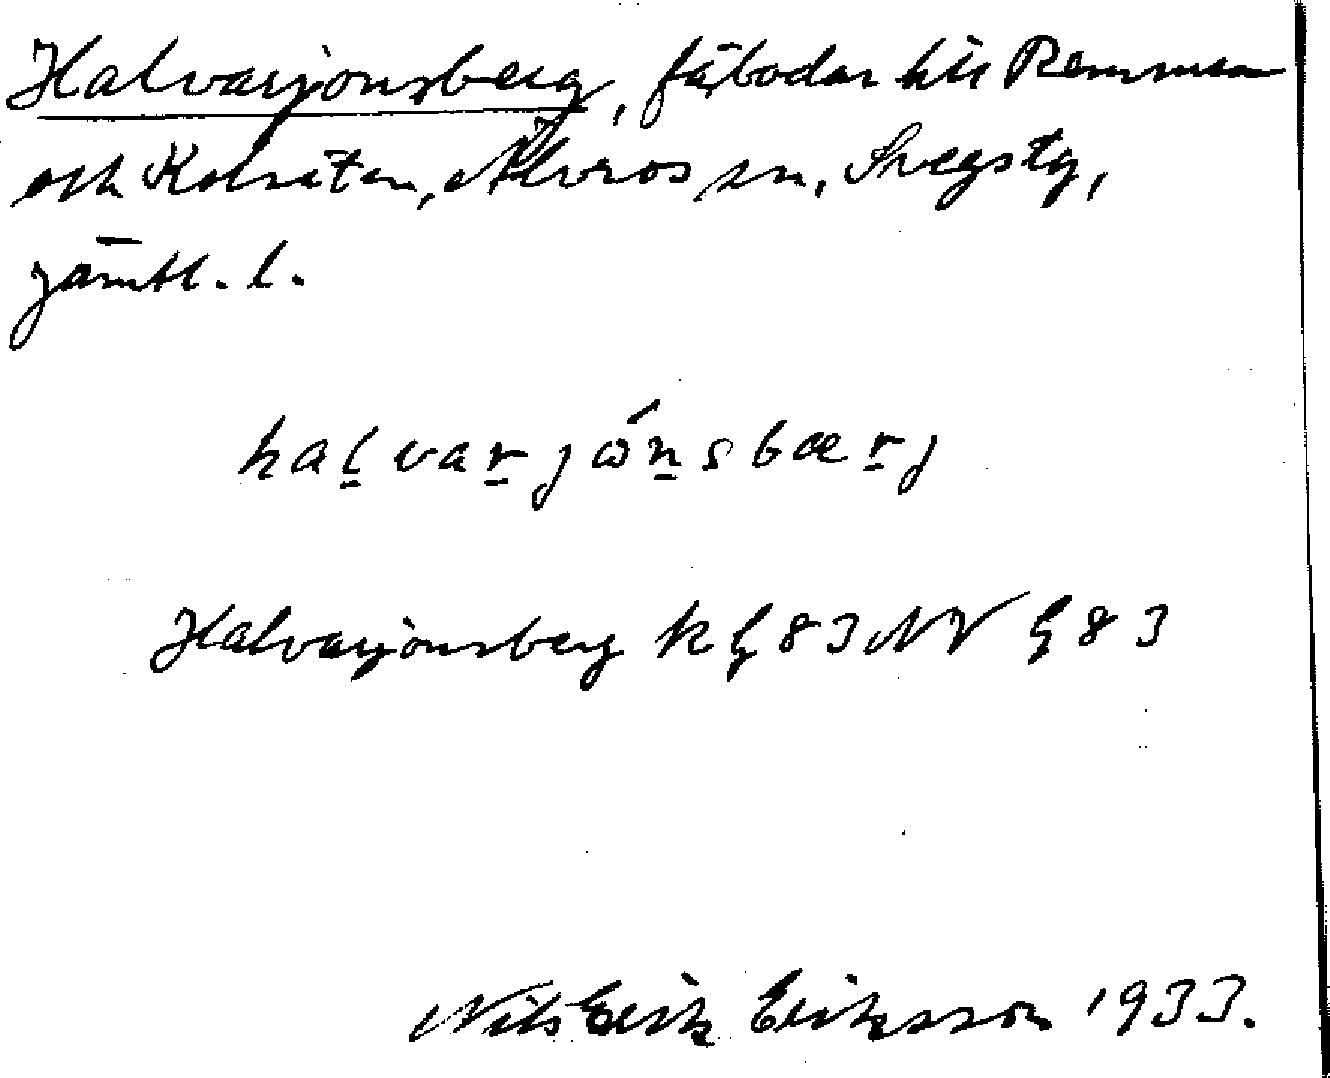 Halvarjonsberg, fäbodar till Remmen
och Kolsätan, Älvros sn, Svegs tg,
Jämtl. l.
halvarjónsbærj
Halvarjonsberg k G 83 NV G 83
Nils Erik Eriksson 1933.